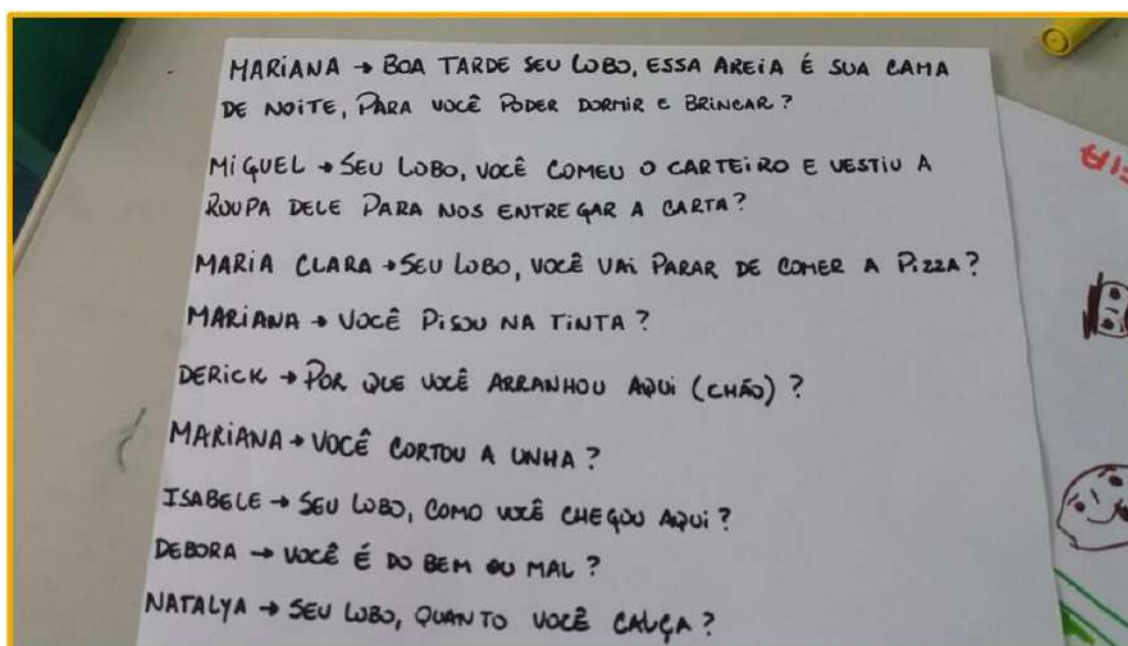 MARIANA → BOA TARDE SEU LOBO, ESSA AREIA É SUA CAMA
DE NOITE, PARA VOCÊ PODER DORMIR E BRINCAR?
MIGUEL → SEU LOBO, VOCÊ COMEU O CARTEIRO E VESTIU A
ROUPA DELE PARA NOS ENTREGAR A CARTA?
MARIA CLARA → SEU LOBO, VOCÊ VAI PARAR DE COMER A PIZZA?
MARIANA → VOCÊ PISOU NA TINTA?
DERICK → POR QUE VOCÊ ARRANHOU AQUI (CHÃO)?
MARIANA → VOCÊ CORTOU A UNHA?
ISABELE → SEU LOBO, COMO VOCÊ CHEGOU AQUI?
DEBORA → VOCÊ É DO BEM OU MAL?
NATALYA → SEU LOBO, QUANTO VOCÊ CALÇA?